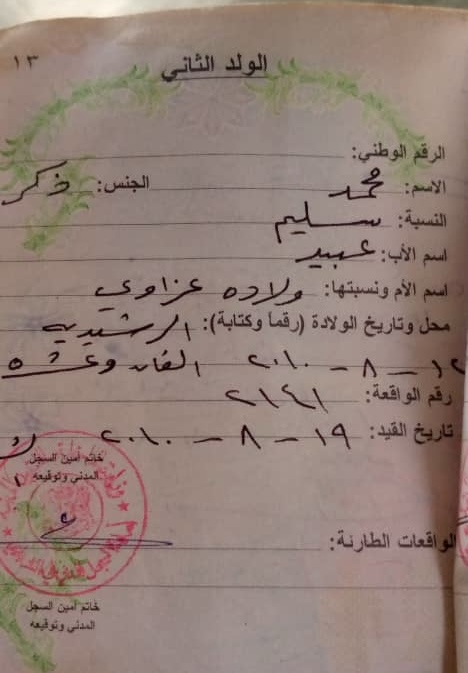 ١٣
الولد الثاني
الرقم الوطني:
الاسم: محمد الجنس: ذكر
النسبة: سليم
اسم الأب: عبيد
اسم الأم ونسبتها: ولاده عزاوي
محل وتاريخ الولادة (رقماً وكتابة): الرشيديه
١٢ – ٨ – ٢٠١٠ الفان وعشره
رقم الواقعة: ٢١٤١
تاريخ القيد: ١٩ – ٨ – ٢٠١٠
خاتم أمين السجل
المدني وتوقيعه
الواقعات الطارئة:
خاتم أمين السجل
المدني وتوقيعه